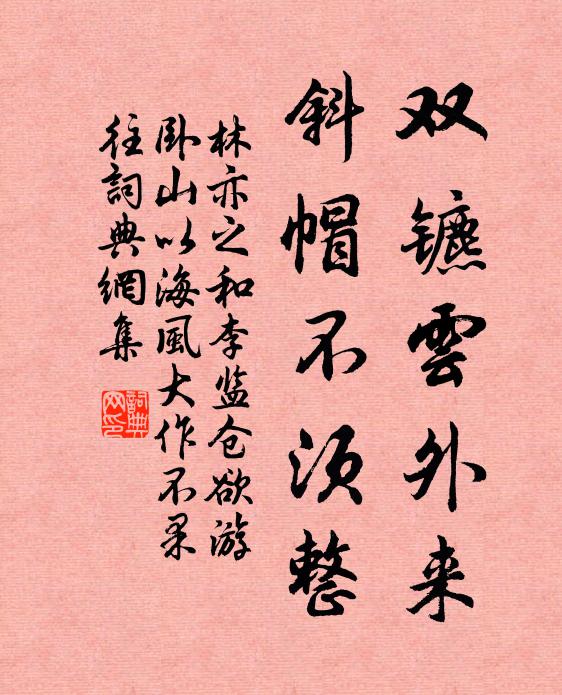 双镳雲外来
斜帽不须整
林亦之和李监仓欲游
卧山以海風大作不果
往詞典網集
詞典
网印